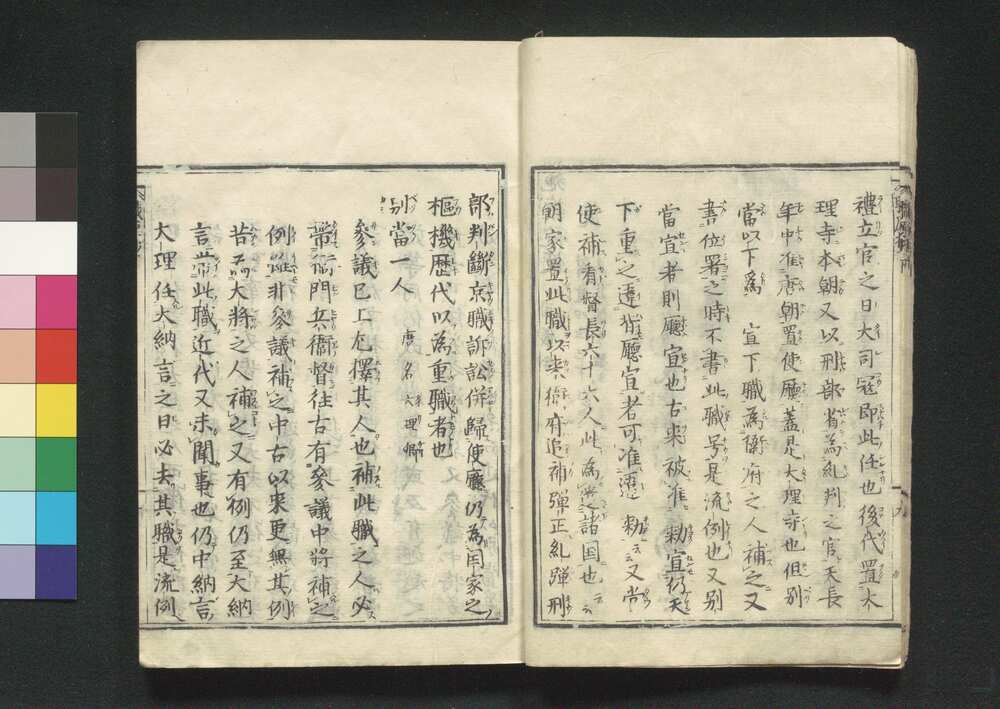 禮立官之日大司冦即此任也後代置大
理寺本朝又以刑部省為糺判之官天長
年中准唐朝置使廳盖是大理寺也但別
當以下為　宣下職為衛府之人補之又
書位署之時不書此職号是流例也又別
當宣者則廳宣也古來被准勅宣仍天
下重之違背廳宣者可准違　勅云云又當
使補看督長六十六人此為遣諸国也云云
朝家置此職以来衛府追補彈正糺彈刑
部判斷京職訴訟併歸使廳仍為国家之
樞機歴代以為重職者也
別當一人　唐名大理卿
參議已上尤擇其人也補此職之人必
帶衛門兵衛督往古有參議中將補之
例雖非參議補之中古以來更無其例
昔右大將之人補之又有例仍至大納
言帶此職近代又未聞事也仍中納言
大理任大納言之日必去其職是流例